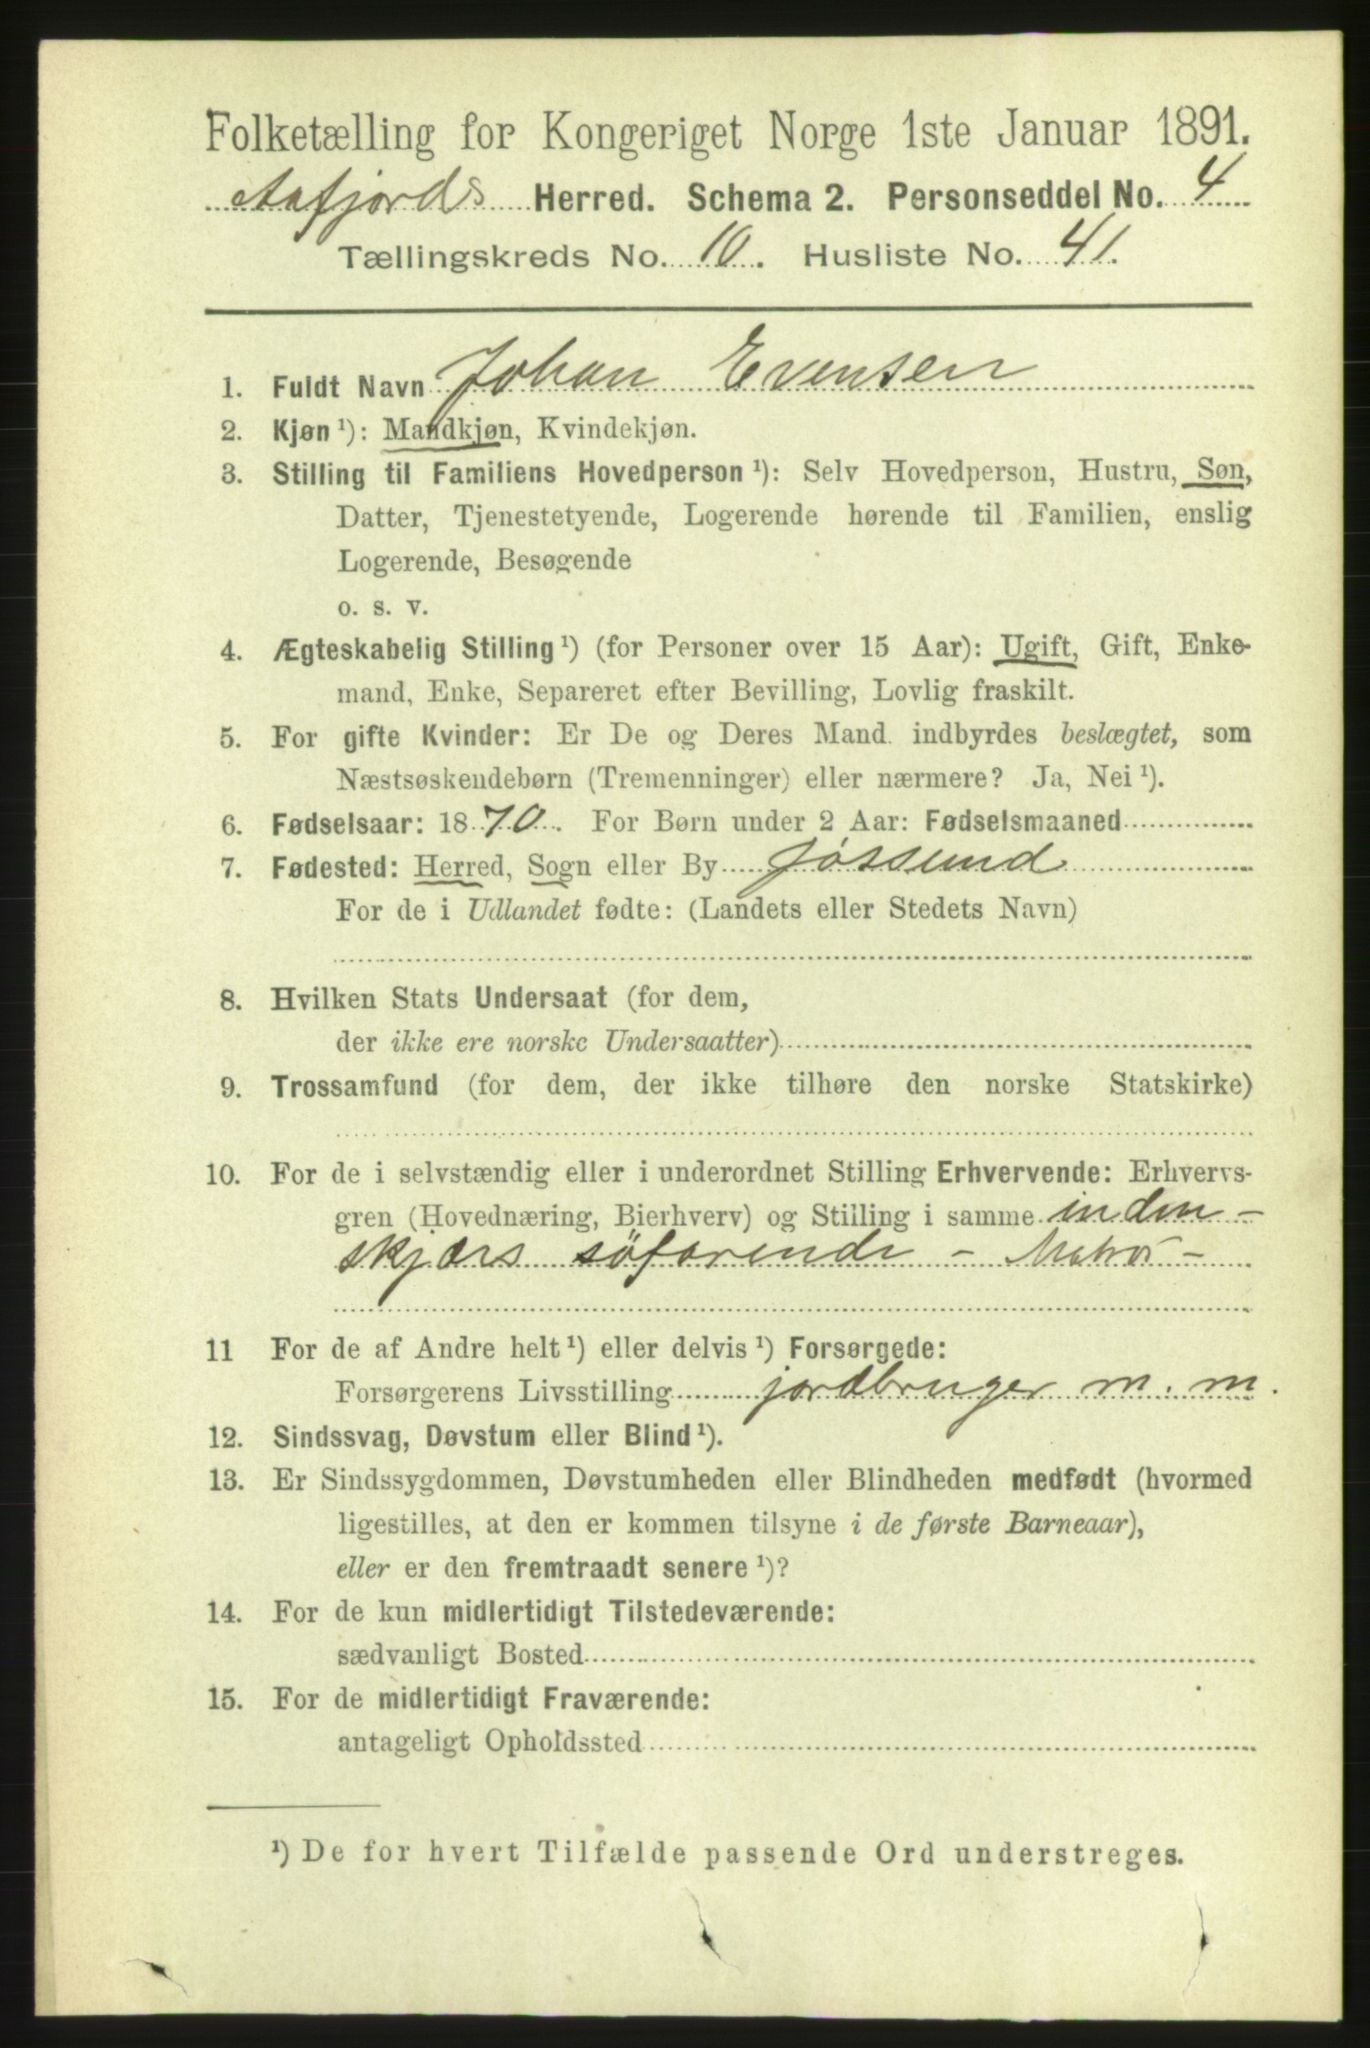 Folketælling for Kongeriget Norge 1ste Januar 1891.
Aafjords Herred. Schema 2. Personseddel No. 4
Tællingskreds No. 10. Husliste No. 41.
1. Fuldt Navn Johan Evensen
2. Kjøn ¹): Mandkjøn, Kvindekjøn.
3. Stilling til Familiens Hovedperson ¹): Selv Hovedperson, Hustru, Søn,
Datter, Tjenestetyende, Logerende hørende til Familien, enslig
Logerende, Besøgende
o. s. v.
4. Ægteskabelig Stilling ¹) (for Personer over 15 Aar): Ugift, Gift, Enke-
mand, Enke, Separeret efter Bevilling, Lovlig fraskilt.
5. For gifte Kvinder: Er De og Deres Mand indbyrdes beslægtet, som
Næstsøskendebørn (Tremenninger) eller nærmere? Ja, Nei ¹).
6. Fødselsaar: 1870. For Børn under 2 Aar: Fødselsmaaned
7. Fødested: Herred, Sogn eller By Jøssund
For de i Udlandet fødte: (Landets eller Stedets Navn)
8. Hvilken Stats Undersaat (for dem,
der ikke ere norske Undersaatter)
9. Trossamfund (for dem, der ikke tilhøre den norske Statskirke)
10. For de i selvstændig eller i underordnet Stilling Erhvervende: Erhvervs-
gren (Hovednæring, Bierhverv) og Stilling i samme inden-
skjærs söfarende - Matros -
11 For de af Andre helt ¹) eller delvis ¹) Forsørgede:
Forsørgerens Livsstilling jordbruger m. m.
12. Sindssvag, Døvstum eller Blind ¹).
13. Er Sindssygdommen, Døvstumheden eller Blindheden medfødt (hvormed
ligestilles, at den er kommen tilsyne i de første Barneaar),
eller er den fremtraadt senere ¹)?
14. For de kun midlertidigt Tilstedeværende:
sædvanligt Bosted
15. For de midlertidigt Fraværende:
antageligt Opholdssted
¹) De for hvert Tilfælde passende Ord understreges.